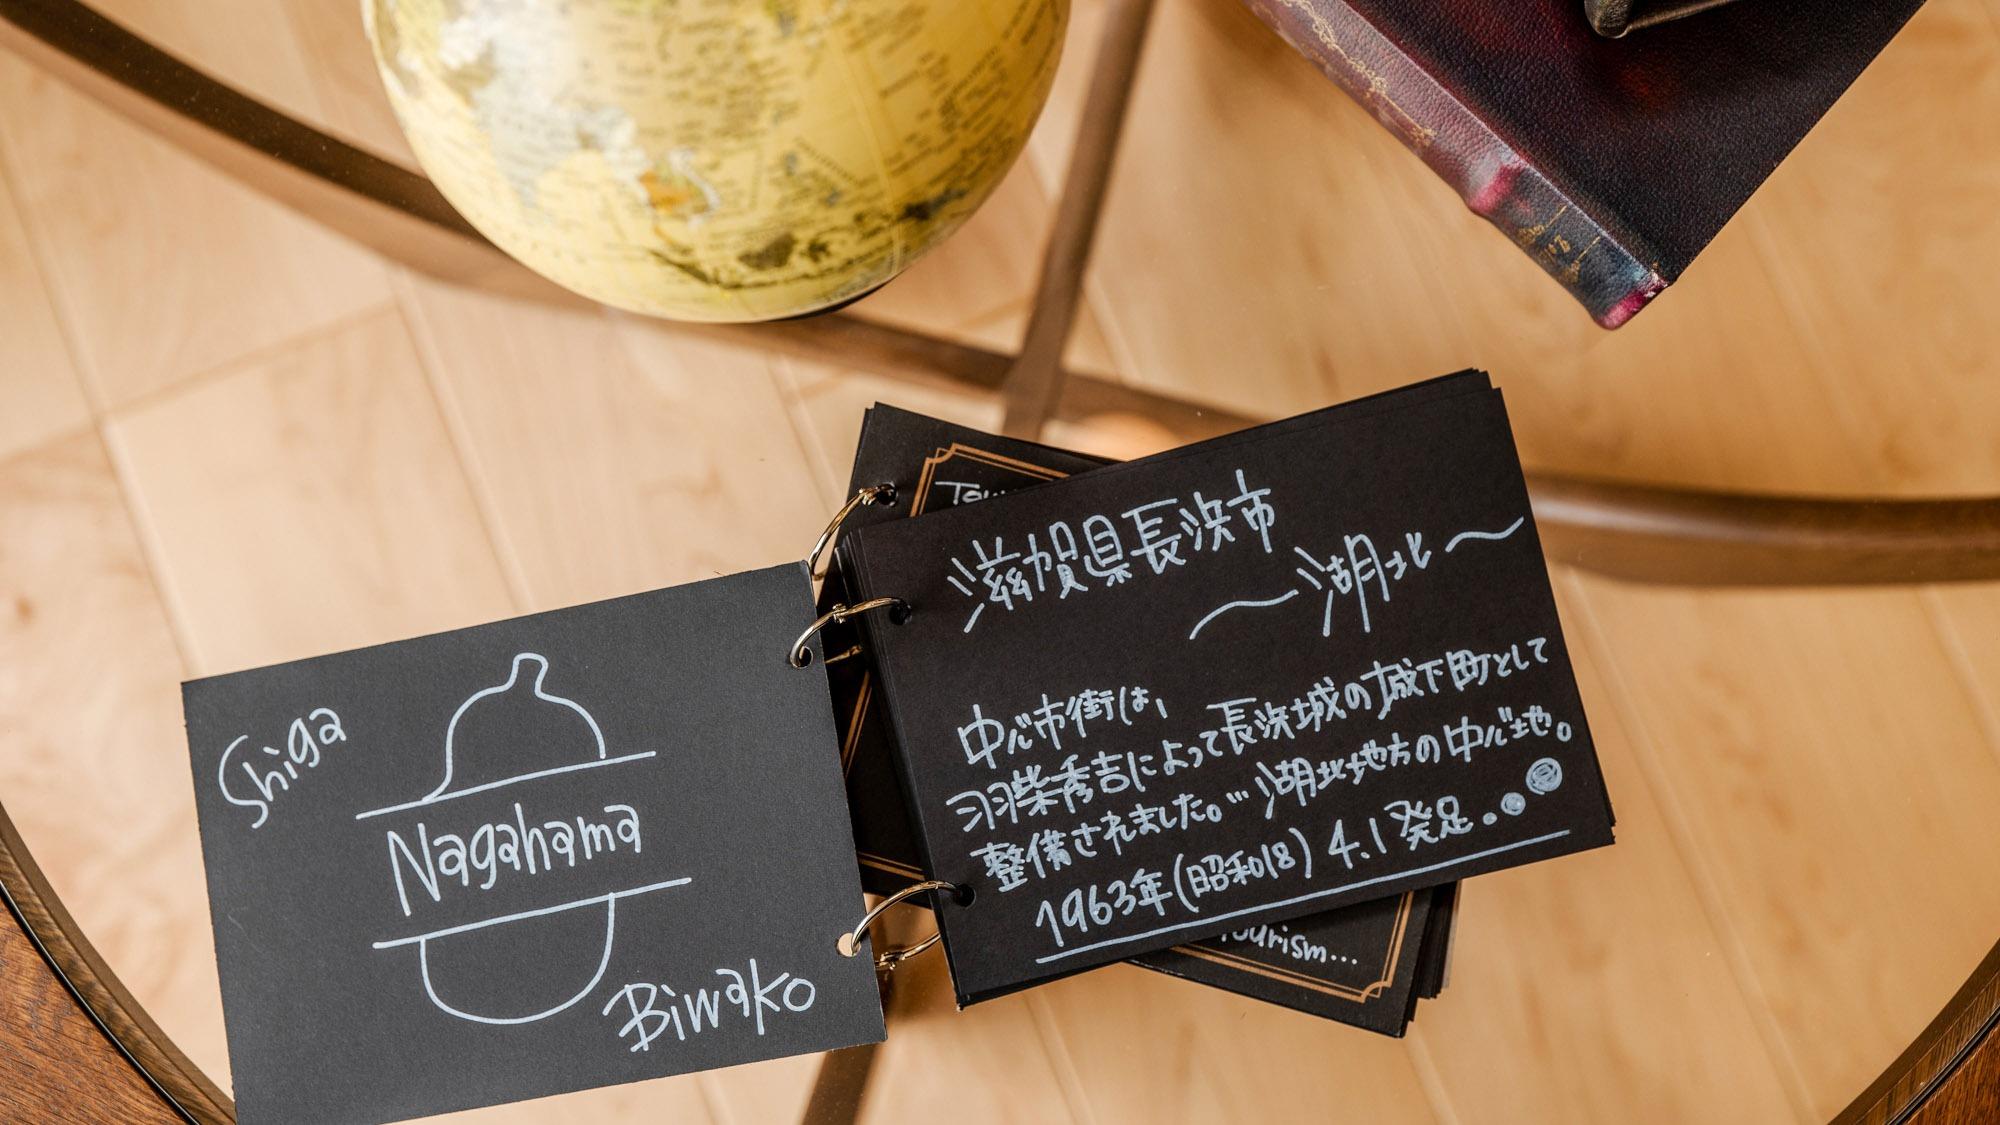 Shiga
Nagahama
Biwako
滋賀県長浜市
〜湖北〜
中心市街は、
羽柴秀吉によって長浜城の城下町として
整備されました。…湖北地方の中心地。
1963年(昭和18) 4.1 発足...
Tourism...